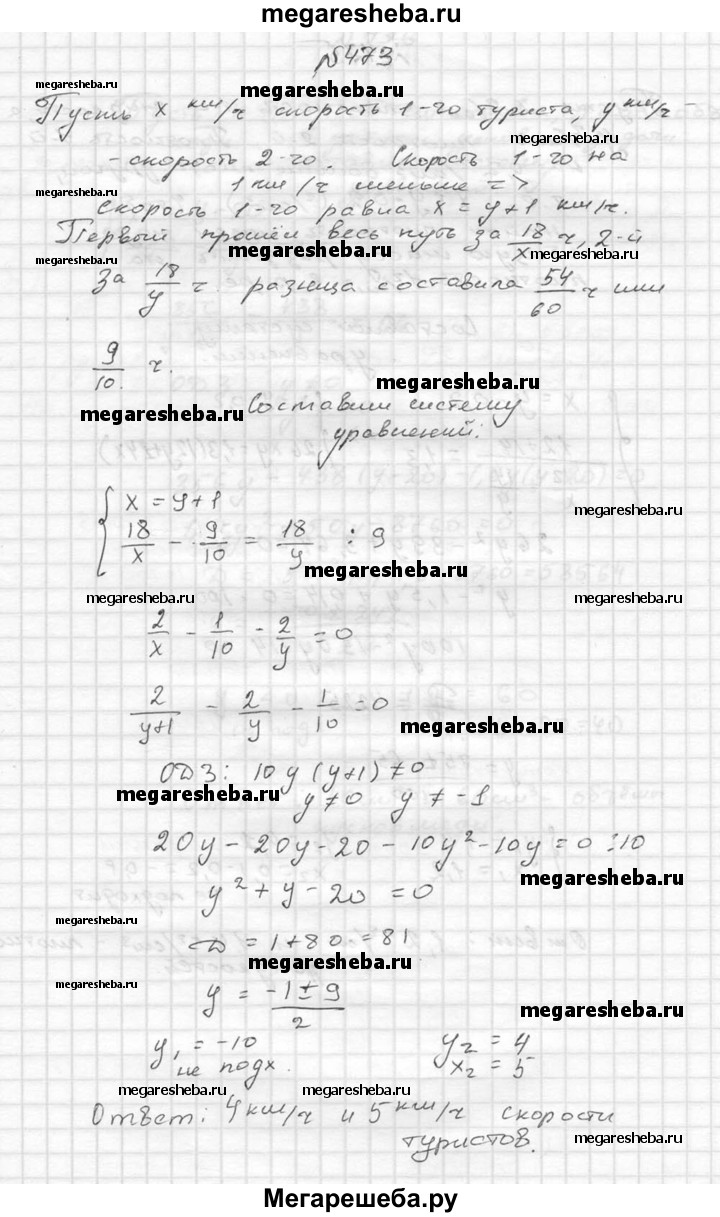 megaresheba.ru
№473
megaresheba.ru
megaresheba.ru
Пусть x км/ч скорость 1-го туриста, y км/ч -
megaresheba.ru
- скорость 2-го. Скорость 1-го на
1 км/ч меньше =>
megaresheba.ru
Скорость 1-го равна x = y+1 км/ч.
Первый прошёл весь путь за 18/x ч, 2-й
megaresheba.ru
megaresheba.ru
megaresheba.ru
за 18/y ч. разница составила 54/60 ч или
9/10. ч.
megaresheba.ru
megaresheba.ru
Составим систему
уравнений:
{ x = y+1
megaresheba.ru
18/x - 9/10 = 18/y : 9
megaresheba.ru
megaresheba.ru
megaresheba.ru
2/x - 1/10 - 2/y = 0
2/(y+1) - 2/y - 1/10 = 0
megaresheba.ru
ОДЗ: 10y(y+1) ≠ 0
megaresheba.ru
y ≠ 0 y ≠ -1
20y - 20y - 20 - 10y² - 10y = 0 :10
megaresheba.ru
y² + y - 20 = 0
megaresheba.ru
D = 1+80 = 81
megaresheba.ru
megaresheba.ru
y = (-1 ± 9)/2
megaresheba.ru
y₁ = -10 y₂ = 4
не подх. x₂ = 5
megaresheba.ru
megaresheba.ru
Ответ: 4 км/ч и 5 км/ч скорости
туристов.
megaresheba.ru
Мегарешеба.ру